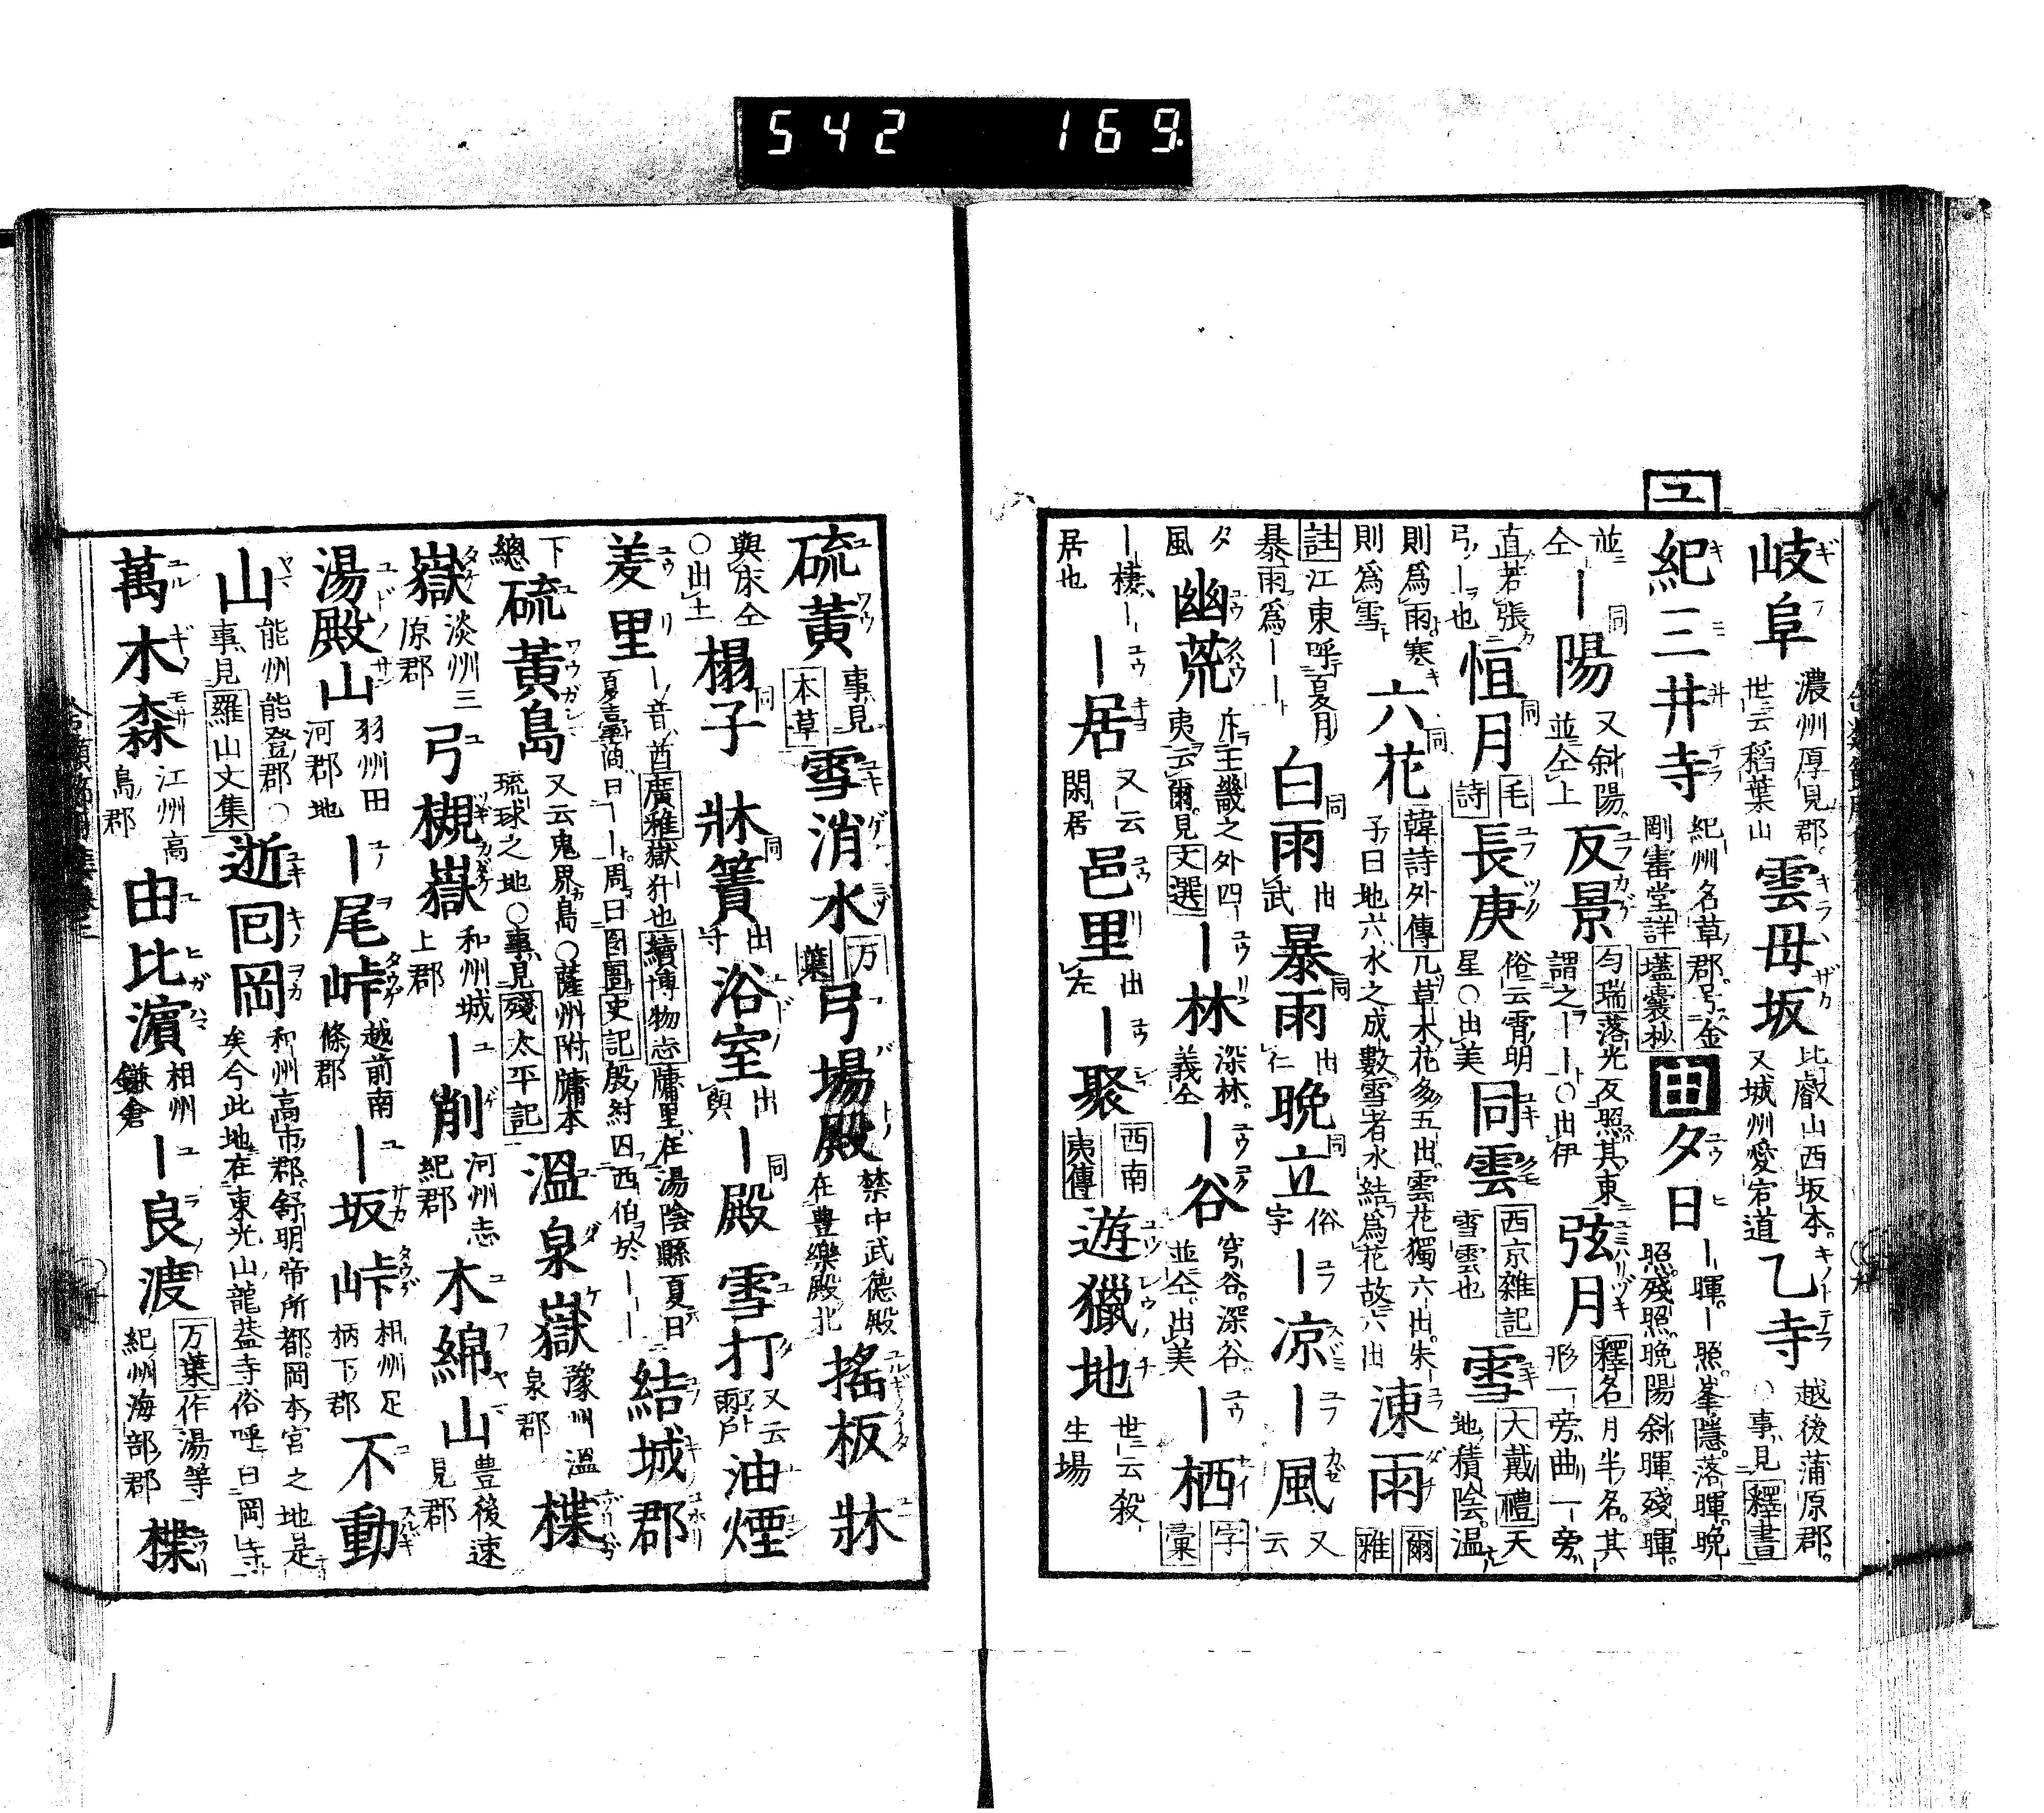 542 169.
ユ
岐阜 濃州厚見郡 世云稲葉山 雲母坂 比叡山西坂本。又城州愛宕道 乙寺 越後蒲原郡。○事見釋書
紀三井寺 紀州名草郡号金剛寳堂詳壒囊抄 由 夕日 ー暉。ー照。峯隱。落暉。晚照。殘照。晚陽斜暉。殘暉。
並仝 ー陽 同 又斜陽。並仝上 反景 勻瑞落光反照其東謂之ーー○出伊 弦月 釋名月半名。其形一旁曲一旁
直若張弓ーー也 恒月 同 毛詩 長庚 俗云霄明星○出美 同雲 西京雜記雪雲也 雪 大戴禮天地積陰。温
則爲雨寒則爲雪 六花 同 韓詩外傳凡草木花多五出。雲花獨六出。朱子曰地六水之成數雪者水結爲花故六出 涷雨 爾雅
註江東呼夏月暴雨爲ーー 白雨 同 出武 暴雨 同 出仁 晩立 同 俗字 ー凉 ー風 又云
夕風 幽荒 王畿之外四夷云爾。見文選 ー林 深林。義仝 ー谷 穹谷。深谷。並仝出美 ー栖 字彙
ー棲ーー居也 ー居 又云閑居 邑里 出左 ー聚 西南夷傳 遊獵地 世云殺生場
硫黄 事見本草 雪消水 万葉 弓場殿 禁中武德殿在豊樂殿北 搖板 牀
與床仝○出土 榻子 同 牀簀 同 出字 浴室 出與 ー殿 同 雪打 又云雨戶 油煙
羑里 ー音酋廣雅獄犴也續博物志牖里在湯陰縣夏曰夏臺商曰ーー周曰囹圄史記殷紂囚西伯於ーー 結城郡
下總 硫黄島 又云鬼界島○薩州附牗本琉球之地○事見殘太平記 溫泉嶽 豫州溫泉郡 楪
嶽 淡州三原郡 弓槻嶽 和州城上郡 ー削 河州志紀郡 木綿山 豊後速見郡
湯殿山 羽州田河郡地 ー尾峠 越前南條郡 ー坂峠 相州足柄下郡 不動
山 能州能登郡○事見羅山文集 逝回岡 和州高市郡舒明帝所都岡本宮之地是矣今此地在東光山龍蓋寺俗呼曰岡寺
萬木森 江州高島郡 由比濵 相州鎌倉 ー良渡 万葉作湯等紀州海部郡 楪